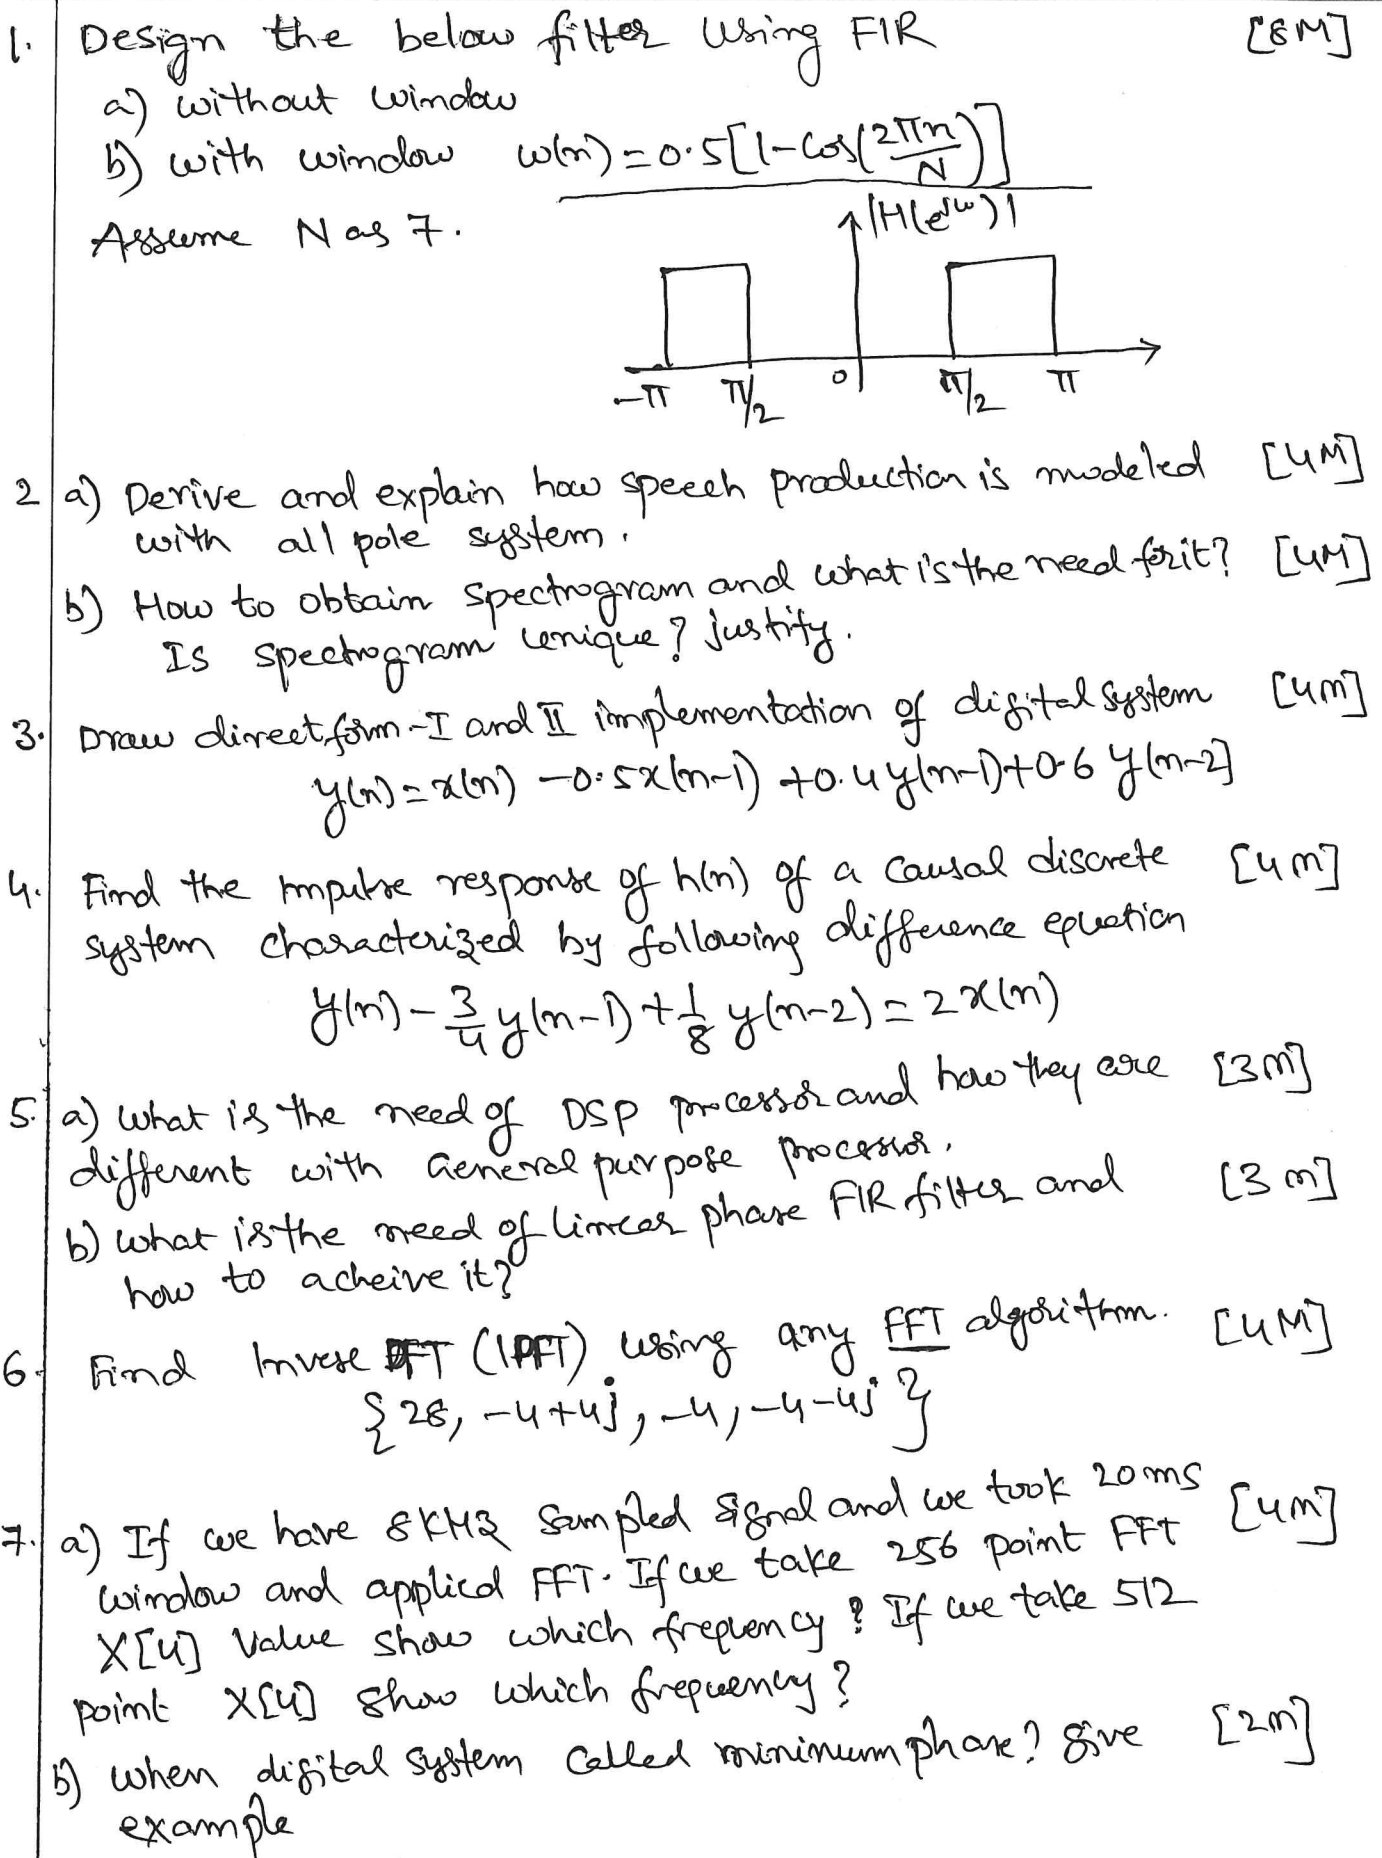 1. Design the below filter using FIR [8M]
a) without window
b) with window w(n) = 0.5[1-cos(2πn/N)]
Assume N as 7.
|H(e^jω)|
-π π/2 0 π/2 π
2 a) Derive and explain how speech production is modeled [4M]
with all pole system.
b) How to obtain spectrogram and what is the need for it? [4M]
Is spectrogram unique? justify.
3. Draw direct form-I and II implementation of digital system [4m]
y(n) = x(n) -0.5x(n-1) +0.4y(n-1)+0.6 y(n-2]
4. Find the impulse response of h(n) of a causal discrete [4m]
system characterized by following difference equation
y(n) - 3/4 y(n-1) + 1/8 y(n-2) = 2x(n)
5. a) what is the need of DSP processor and how they are [3m]
different with General purpose processor.
b) what is the need of linear phase FIR filter and [3m]
how to acheive it?
6. Find Invese DFT (IDFT) using any FFT algorithm. [4M]
{28, -4+4j, -4, -4-4j}
7. a) If we have 8KHz sampled signal and we took 20ms [4m]
window and applied FFT. If we take 256 point FFT
X[4] value show which frequency? If we take 512
point X[4] show which frequency?
b) when digital system called minimum phase? give [2m]
example